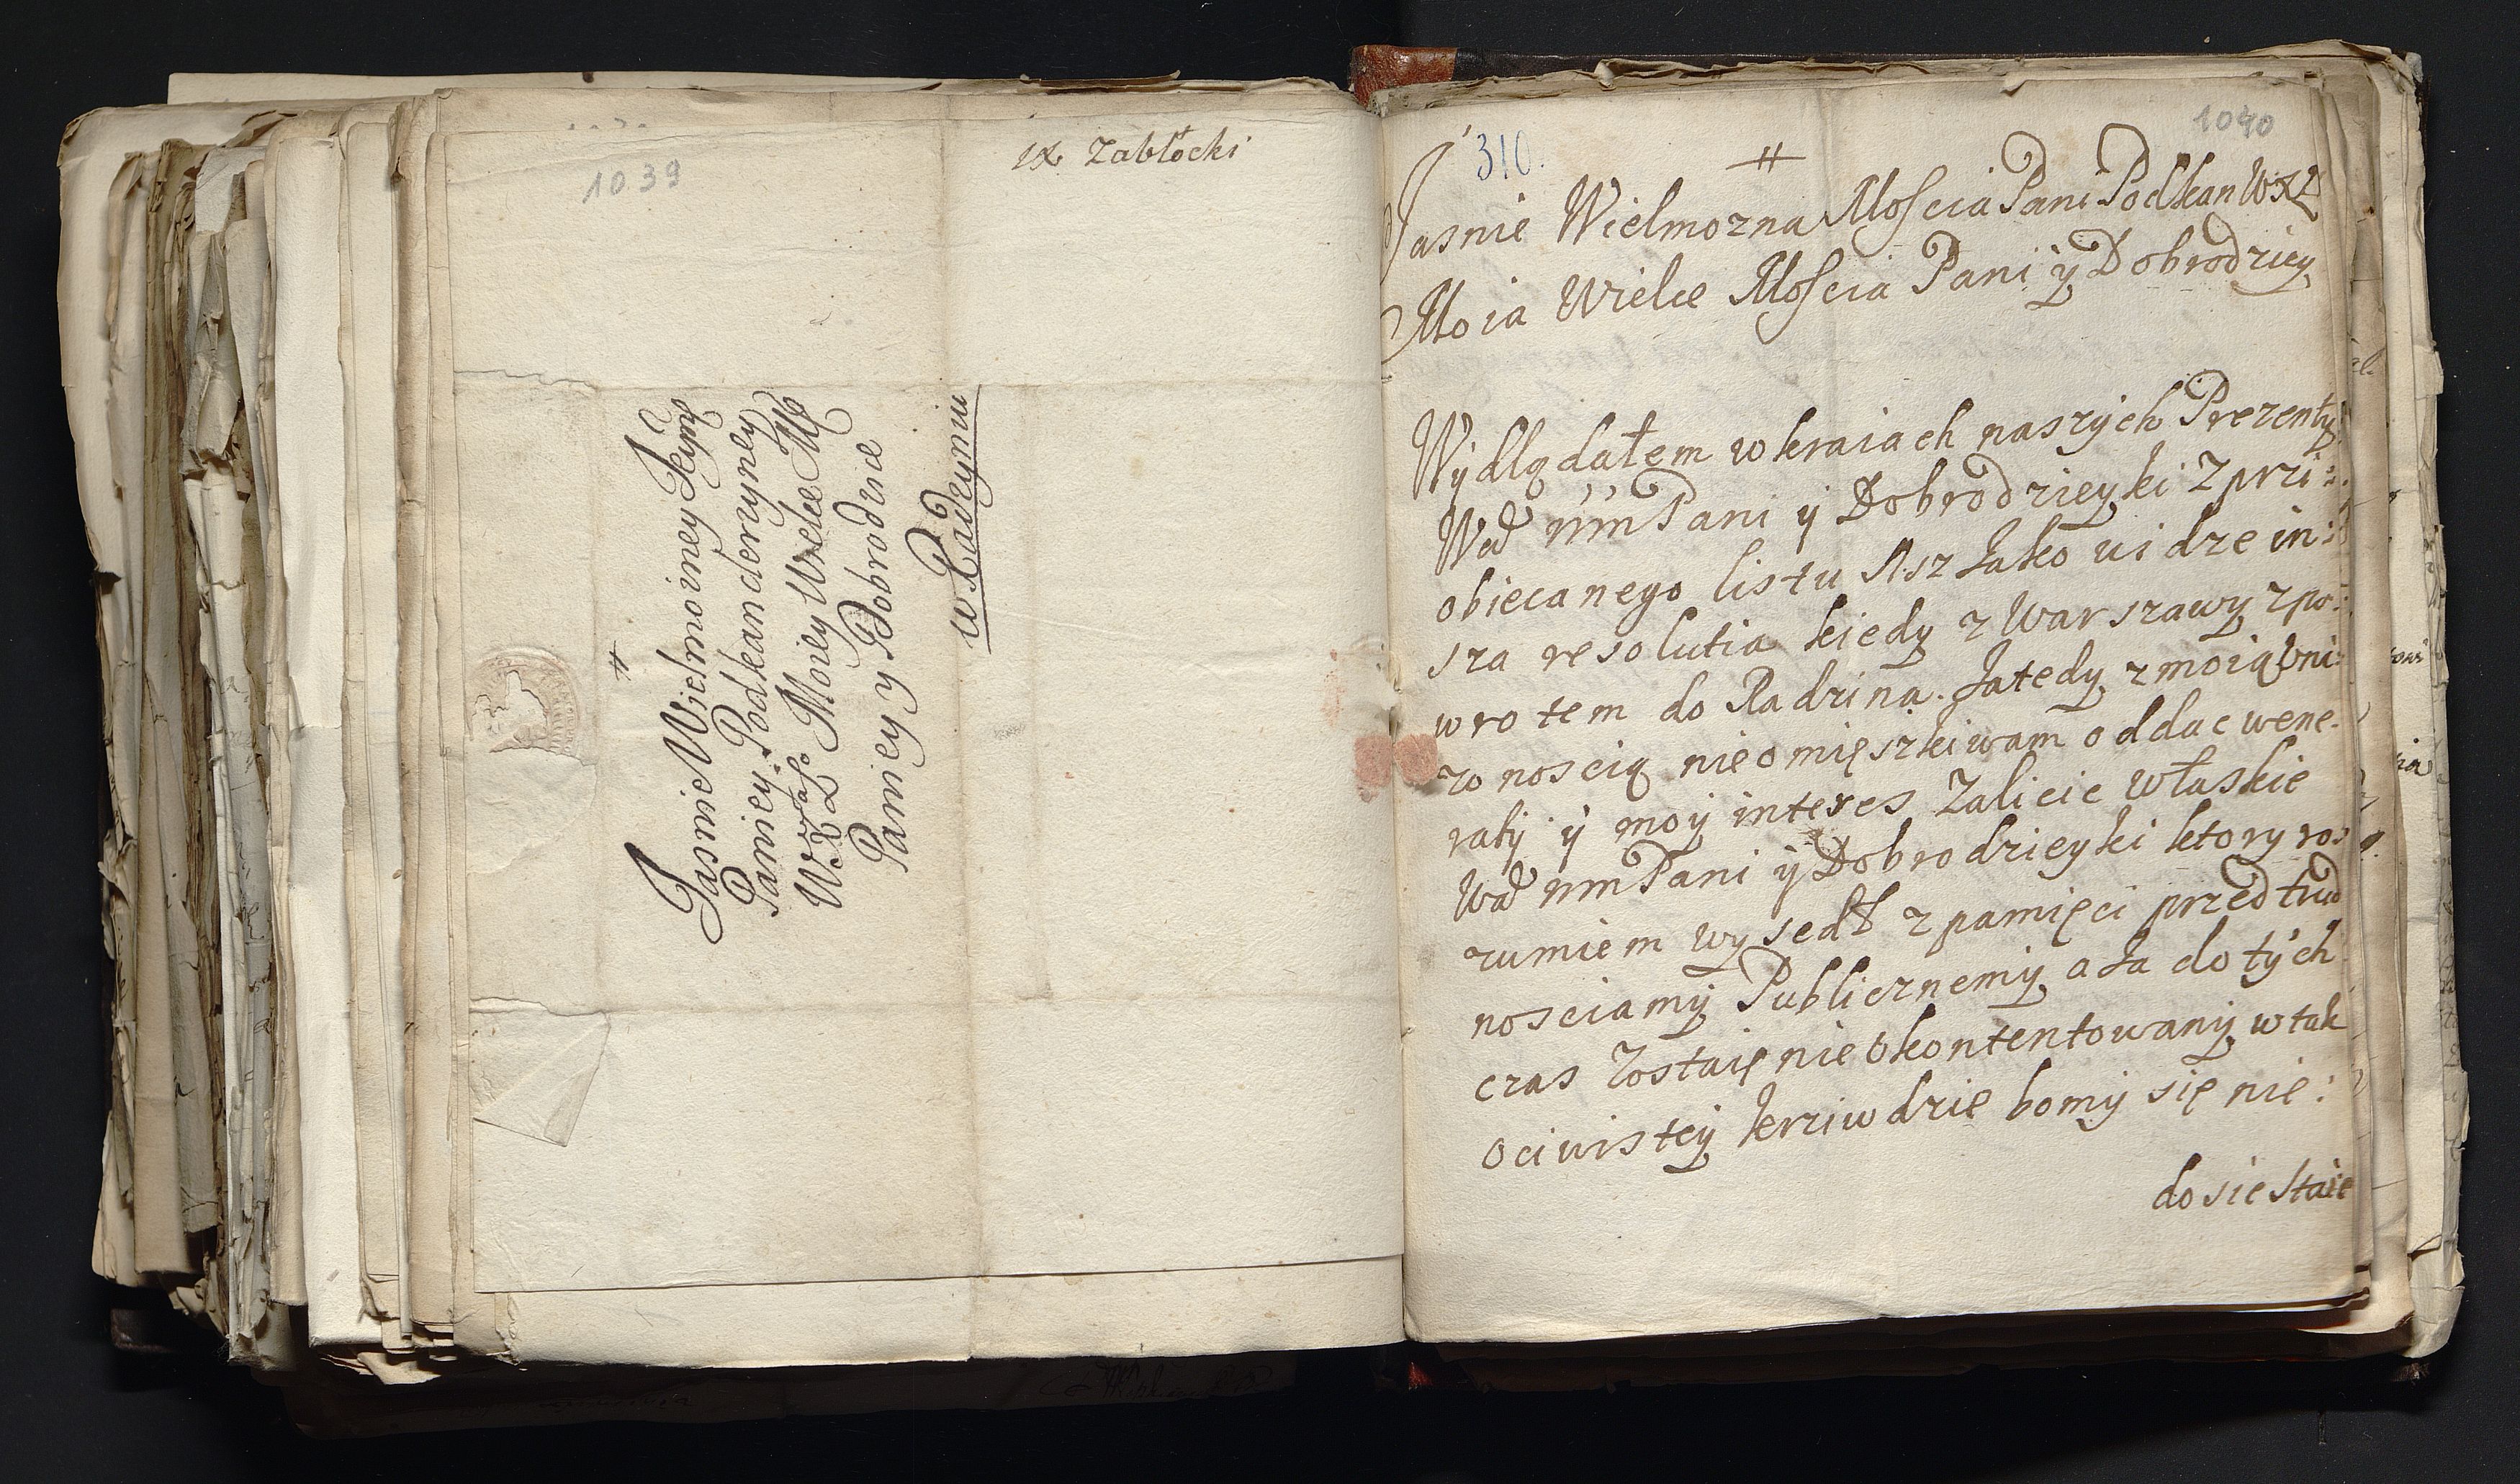 1039
IX Zabłocki
#
Jasnie Wielmozney Jeymę
Paniey Podkanclerzyney
WXL Moiey Wielce Mę
Paniey y Dobrodźce
w Radzyniu
1040
310.
#
Jasnie Wielmozna Moscia Pani Podkan WXL
Moia Wielce Moscia Pani ÿ Dobrodziey
Wÿdlądałem w kraiach naszÿch Prezentÿ
Wd mm Pani ÿ Dobrodzieyki z pzri:
obiecanego listu Asz Jako uidze in:
sza resolutia kiedy z Warszawy z po:
wrotem do Radzina. Ja tedy z moią Uni:
zonoscią nieomięszkiwam oddac wene:
ratÿ ÿ moÿ interes zalicic w łaskie
Wd mm Pani ÿ Dobrodzieyki ktory ros
zumiem wysedł z pamięci przed trud
nosciamÿ Publicznemÿ a Ja do tÿch
czas zostaię nie Ukontentowanÿ w tak
ociwistÿ krziwdzie bo mÿ się nie:
dosie staie